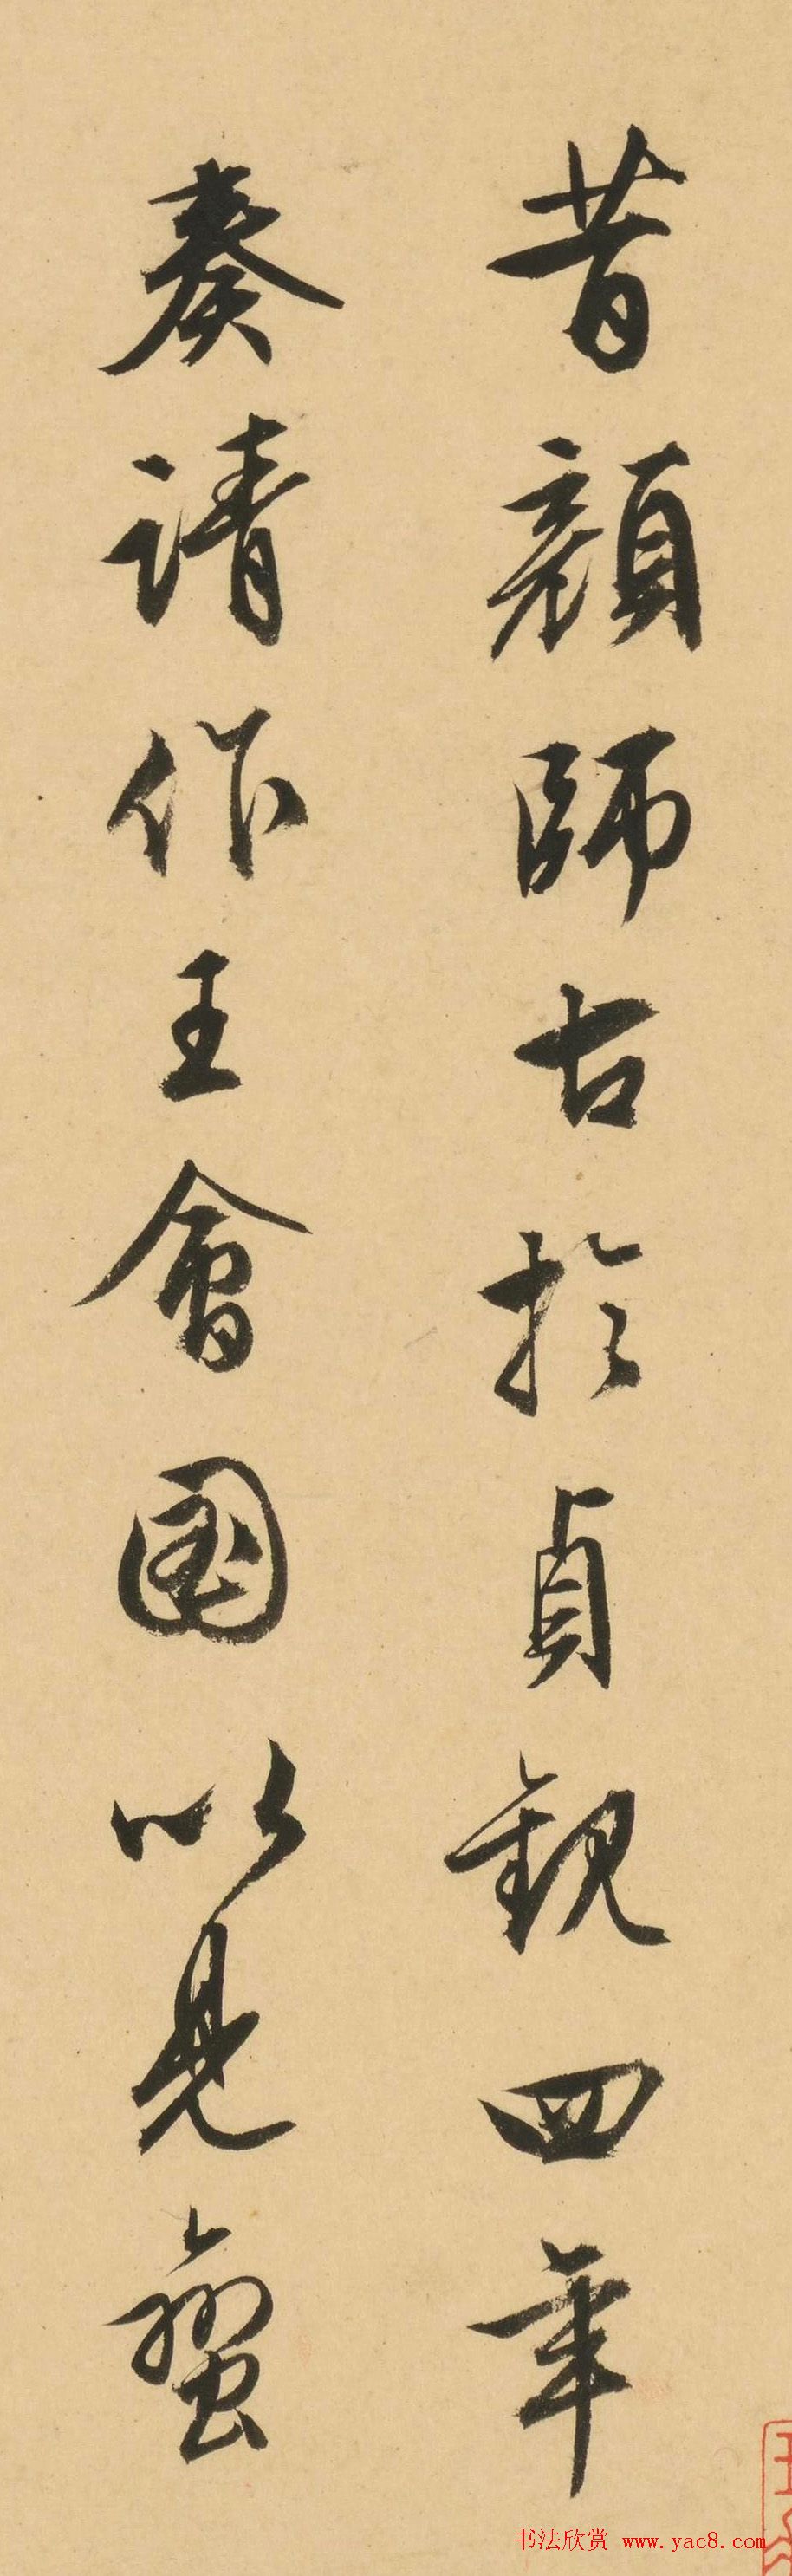 昔顔師古於貞觀四年
奏請作王會圖以見蠻
书法欣赏 www.yac8.com